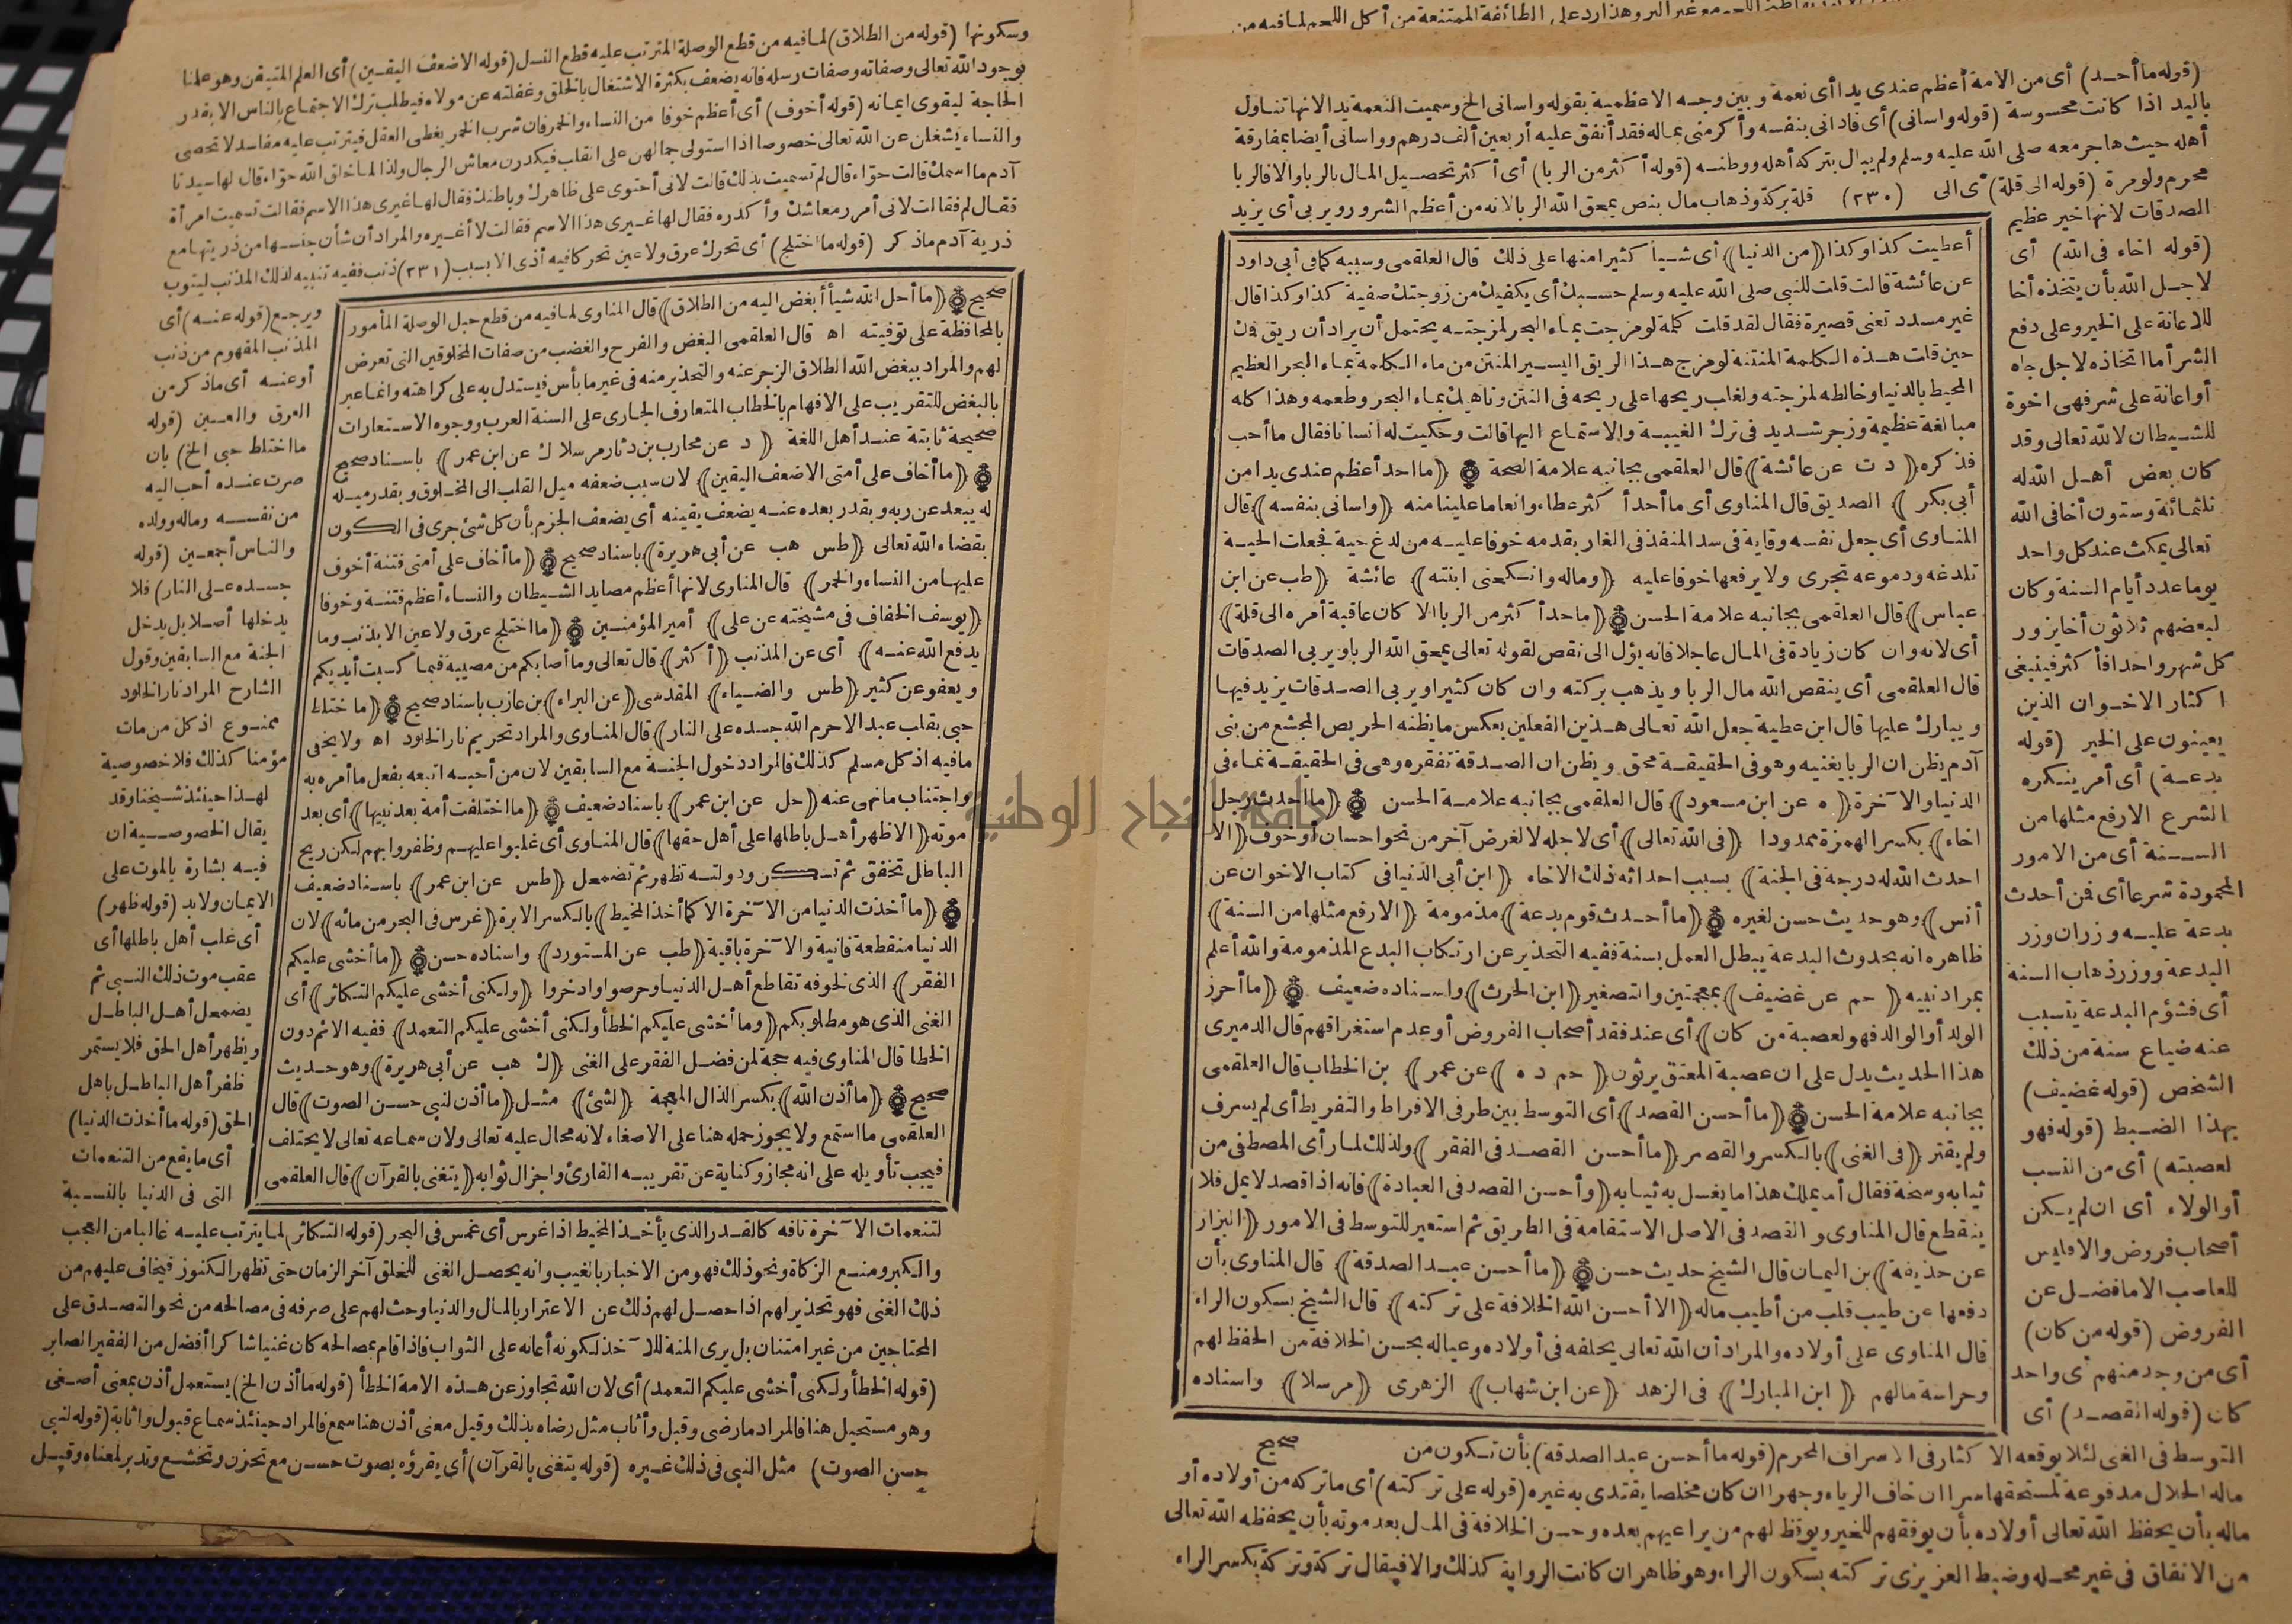 (قوله ما أحد) أى من الامة أعظم عندى يدا أى نعمة وبين وجه الاعظمية بقوله واسانى الخ وسميت النعمة يدا لانها تناول
باليد اذا كانت محسوسة (قوله واسانى) أى فادانى بنفسه وأكرمنى بماله فقد أنفق عليه أربعين ألف درهم وواسانى أيضا بمفارقة
أهله حيث هاجر معه صلى الله عليه وسلم ولم يبال بتركه أهله ووطنه (قوله أكثر من الربا) أى أكثر تحصيل المال بالربا والافالربا
محرم ولو مرة (قوله الى قلة) أى الى (٢٣٠) قلة بركة وذهاب مال بنص يمحق الله الربا لانه من أعظم الشرور ويربى أى يزيد
الصدقات لانها خير عظيم
(قوله اخاء فى الله) أى
لاجل الله بأن يتخذه أخا
للاعانة على الخير وعلى دفع
الشر أما اتخاذه لاجل جاه
أو اعانة على شر فهى اخوة
للشيطان لا لله تعالى وقد
كان بعض أهل الله له
ثلثمائة وستون أخا فى الله
تعالى يمكث عند كل واحد
يوما عدد أيام السنة وكان
لبعضهم ثلاثون أخا يزور
كل شهر واحدا فأكثر فينبغى
اكثار الاخوان الذين
يعينون على الخير (قوله
بدعة) أى أمر ينكره
الشرع الا رفع مثلها من
السنة أى من الامور
المحمودة شرعا أى فمن أحدث
بدعة عليه وزران وزر
البدعة ووزر ذهاب السنة
أى فشؤم البدعة يتسبب
عنه ضياع سنة من ذلك
الشخص (قوله غضيف)
بهذا الضبط (قوله فهو
لعصبته) أى من النسب
أو الولاء أى ان لم يكن
أصحاب فروض والافليس
للعاصب الا ما فضل عن
الفروض (قوله من كان)
أى من وجد منهم أى واحد
كان (قوله القصد) أى
أعطيت كذا وكذا ﴿من الدنيا﴾ أى شيأ كثيرا منها على ذلك قال العلقمى وسببه كما فى أبى داود
عن عائشة قالت قلت للنبى صلى الله عليه وسلم حسبك أى يكفيك من زوجتك صفية كذا وكذا قال
غير مسدد تعنى قصيرة فقال لقد قلت كلمة لو مزجت بماء البحر لمزجته يحتمل أن يراد أن ريق فمك
حين قلت هذه الكلمة المنتنة لو مزج هذا الريق اليسير المنتن من ماء الكلمة بماء البحر العظيم
المحيط بالدنيا وخالطه لمزجته ولغاب ريحها على ريحه فى النتن وناهيك بماء البحر وطعمه وهذا كله
مبالغة عظيمة وزجر شديد فى ترك الغيبة والاستماع اليها قالت وحكيت له انسانا فقال ما أحب
فذكره ﴿د ت عن عائشة﴾ قال العلقمى بجانبه علامة الصحة ﴿ما احد أعظم عندى يدا من
أبى بكر﴾ الصديق قال المناوى أى ما أحد أكثر عطاء وانعاما علينا منه ﴿واسانى بنفسه﴾ قال
المناوى أى جعل نفسه وقاية فى سد المنفذ فى الغار بقدمه خوفا عليه من لدغ حية فجعلت الحية
تلدغه ودموعه تجرى ولا يرفعها خوفا عليه ﴿وماله وانكحنى ابنته﴾ عائشة ﴿طب عن ابن
عباس﴾ قال العلقمى بجانبه علامة الحسن ﴿ما حد أكثر من الربا الا كان عاقبة أمره الى قلة﴾
أى لانه وان كان زيادة فى المال عاجلا فانه يؤل الى نقص لقوله تعالى يمحق الله الربا ويربى الصدقات
قال العلقمى أى ينقص الله مال الربا ويذهب بركته وان كان كثيرا ويربى الصدقات يزيد فيها
ويبارك عليها قال ابن عطية جعل الله تعالى هذين الفعلين بعكس ما يظنه الحريص المجشع من بنى
آدم يظن ان الربا يغنيه وهو فى الحقيقة محق ويظن ان الصدقة تفقره وهى فى الحقيقة نماء فى
الدنيا والآخرة ﴿ه عن ابن مسعود﴾ قال العلقمى بجانبه علامة الحسن ﴿ما احدث رجل
اخاء﴾ بكسر الهمزة ممدودا ﴿فى الله تعالى﴾ أى لاجله لا لغرض آخر من نحو احسان أو خوف ﴿الا
احدث الله له درجة فى الجنة﴾ بسبب احداثه ذلك الاخاء ﴿ابن أبى الدنيا فى كتاب الاخوان عن
أنس﴾ وهو حديث حسن لغيره ﴿ما أحدث قوم بدعة﴾ مذمومة ﴿الا رفع مثلها من السنة﴾
ظاهره انه بحدوث البدعة يبطل العمل بسنة ففيه التحذير عن ارتكاب البدع المذمومة والله أعلم
بمراد نبيه ﴿حم عن غضيف﴾ بمعجمتين والتصغير ﴿ابن الحرث﴾ واسناده ضعيف ﴿ما أحرز
الولد أو الوالد فهو لعصبة من كان﴾ أى عند فقد أصحاب الفروض أو عدم استغراقهم قال الدميرى
هذا الحديث يدل على ان عصبة المعتق يرثون ﴿حم د ه﴾ عن عمر﴾ بن الخطاب قال العلقمى
بجانبه علامة الحسن ﴿ما أحسن القصد﴾ أى التوسط بين طرفى الافراط والتفريط أى لم يسرف
ولم يقتر ﴿فى الغنى﴾ بالكسر والقصر ﴿ما أحسن القصد فى الفقر﴾ ولذلك لما رأى المصطفى من
ثيابه وسخة فقال أما يملك هذا ما يغسل به ثيابه ﴿وأحسن القصد فى العبادة﴾ فانه اذا قصد لا يمل فلا
ينقطع قال المناوى والقصد فى الاصل الاستقامة فى الطريق ثم استعير للتوسط فى الامور ﴿البزار
عن حذيفة﴾ بن اليمان قال الشيخ حديث حسن ﴿ما أحسن عبد الصدقة﴾ قال المناوى بأن
دفعها عن طيب قلب من أطيب ماله ﴿الا أحسن الله الخلافة على تركته﴾ قال الشيخ بسكون الراء
قال المناوى على أولاده والمراد أن الله تعالى يخلفه فى أولاده وعياله بحسن الخلافة من الحفظ لهم
وحراسة مالهم ﴿ابن المبارك﴾ فى الزهد ﴿عن ابن شهاب﴾ الزهرى ﴿مرسلا﴾ واسناده
صحيح
التوسط فى الغنى لئلا يوقعه الاكثار فى الاسراف المحرم (قوله ما أحسن عبد الصدقة) بأن تكون من
ماله الحلال مدفوعة لمستحقها سرا ان خاف الرياء وجهرا ان كان مخلصا يقتدى به غيره (قوله على تركته) أى ما تركه من أولاده أو
ماله بأن يحفظ الله تعالى أولاده بأن يوفقهم للخير ويوقظ لهم من يراعيهم بعده وحسن الخلافة فى المال بعد موته بأن يحفظه الله تعالى
من الانفاق فى غير محله وضبط العزيزى تركته بسكون الراء وهو ظاهر ان كانت الرواية كذلك والا فيقال تركة وتركة بكسر الراء
وسكونها (قوله من الطلاق) لما فيه من قطع الوصلة المترتب عليه قطع النسل (قوله الاضعف اليقين) أى العلم المتيقن وهو علمنا
بوجود الله تعالى وصفاته وصفات رسله فانه يضعف بكثرة الاشتغال بالخلق وغفلته عن مولاه فيطلب ترك الاجتماع بالناس الا بقدر
الحاجة ليقوى ايمانه (قوله أخوف) أى أعظم خوفا من النساء والخمر فان شرب الخمر يغطى العقل فيترتب عليه مفاسد لا تحصى
والنساء يشغلن عن الله تعالى خصوصا اذا استولى جمالهن على القلب فيكدرن معاش الرجال ولذا لما خلق الله حواء قال لها سيدنا
آدم ما اسمك قالت حواء قال لم تسميت بذلك قالت لانى أحتوى على ظاهرك وباطنك فقال لها غيرى هذا الاسم فقالت تسميت امرأة
فقال لم فقالت لانى أمرر معاشك وأكدره فقال لها غيرى هذا الاسم فقالت لا أغيره والمراد أن شأن جنسها من ذريتها مع
ذرية آدم ماذكر (قوله ما اختلج) أى تحرك عرق ولا عين تحركا فيه أذى الا بسبب (٢٣١) ذنب ففيه تنبيه لذلك المذنب ليتوب
ويرجع (قوله عنه) أى
المذنب المفهوم من ذنب
أو عنه أى ماذكر من
العرق والعين (قوله
ما اختلط حبى الخ) بان
صرت عنده أحب اليه
من نفسه وماله وولده
والناس أجمعين (قوله
جسده على النار) فلا
يدخلها أصلا بل يدخل
الجنة مع السابقين وقول
الشارح المراد نار الخلود
ممنوع اذ كل من مات
مؤمنا كذلك فلا خصوصية
لهذا حينئذ شيخنا وقد
يقال الخصوصية ان
فيه بشارة بالموت على
الايمان ولابد (قوله ظهر)
أى غلب أهل باطلها أى
عقب موت ذلك النبى ثم
يضمحل أهل الباطل
ويظهر أهل الحق فلا يستمر
ظفر أهل الباطل باهل
الحق (قوله ما أخذت الدنيا)
أى ما يقع من التنعمات
التى فى الدنيا بالنسبة
صحيح ﴿ما أحل الله شيأ أبغض اليه من الطلاق﴾ قال المناوى لما فيه من قطع حبل الوصلة المأمور
بالمحافظة على توفيته اه قال العلقمى البغض والفرح والغضب من صفات المخلوقين التى تعرض
لهم والمراد ببغض الله الطلاق الزجر عنه والتحذير منه فى غير ما بأس فيستدل به على كراهته وانما عبر
بالبغض للتقريب على الافهام بالخطاب المتعارف الجارى على السنة العرب ووجوه الاستعارات
صحيحة ثابتة عند أهل اللغة ﴿د عن محارب بن دثار مرسلا ك عن ابن عمر﴾ باسناد صحيح
﴿ما أخاف على أمتى الا ضعف اليقين﴾ لان سبب ضعفه ميل القلب الى المخلوق وبقدر ميله
له يبعد عن ربه وبقدر بعده عنه يضعف يقينه أى يضعف الجزم بأن كل شئ جرى فى الكون
بقضاء الله تعالى ﴿طس هب عن أبى هريرة﴾ باسناد صحيح ﴿ما أخاف على أمتى فتنة أخوف
عليها من النساء والخمر﴾ قال المناوى لانها أعظم مصايد الشيطان والنساء أعظم فتنة وخوفا
﴿يوسف الخفاف فى مشيخته عن على﴾ أمير المؤمنين ﴿ما اختلج عرق ولا عين الا بذنب وما
يدفع الله عنه﴾ أى عن المذنب ﴿أكثر﴾ قال تعالى وما أصابكم من مصيبة فبما كسبت أيديكم
ويعفو عن كثير ﴿طس والضياء﴾ المقدسى ﴿عن البراء﴾ بن عازب باسناد صحيح ﴿ما ختلط
حبى بقلب عبد الا حرم الله جسده على النار﴾ قال المناوى والمراد تحريم نار الخلود اه ولا يخفى
مافيه اذ كل مسلم كذلك فالمراد دخول الجنة مع السابقين لان من أحبه اتبعه بفعل ما أمره به
واجتناب ما نهى عنه ﴿حل عن ابن عمر﴾ باسناد ضعيف ﴿ما اختلفت أمة بعد نبيها﴾ أى بعد
موته ﴿الا ظهر أهل باطلها على أهل حقها﴾ قال المناوى أى غلبوا عليهم وظفروا بهم لكن ريح
الباطل تخفق ثم تسكن ودولته تظهر ثم تضمحل ﴿طس عن ابن عمر﴾ باسناد ضعيف
﴿ما أخذت الدنيا من الآخرة الا كما أخذ المخيط﴾ بالكسر الابرة ﴿غرس فى البحر من مائه﴾ لان
الدنيا منقطعة فانية والآخرة باقية ﴿طب عن المستورد﴾ واسناده حسن ﴿ما أخشى عليكم
الفقر﴾ الذى لخوفه تقاطع أهل الدنيا وحرصوا وادخروا ﴿ولكنى أخشى عليكم التكاثر﴾ أى
الغنى الذى هو مطلوبكم ﴿وما أخشى عليكم الخطأ ولكنى أخشى عليكم التعمد﴾ ففيه الاثم دون
الخطا قال المناوى فيه حجة لمن فضل الفقر على الغنى ﴿ك هب عن أبى هريرة﴾ وهو حديث
صحيح ﴿ما أذن الله﴾ بكسر الذال المعجمة ﴿لشئ﴾ مثل ﴿ما أذن لنبى حسن الصوت﴾ قال
العلقمى ما استمع ولا يجوز حمله هنا على الاصغاء لانه محال عليه تعالى ولان سماعه تعالى لا يختلف
فيجب تأويله على انه مجاز وكناية عن تقريبه القارئ واجزال ثوابه ﴿يتغنى بالقرآن﴾ قال العلقمى
لتنعمات الآخرة تافه كالقدر الذى يأخذ المخيط اذا غرس أى غمس فى البحر (قوله التكاثر) لما يترتب عليه غالبا من العجب
والكبر ومنع الزكاة ونحو ذلك فهو من الاخبار بالغيب وانه يحصل الغنى للخلق آخر الزمان حتى تظهر الكنوز فيخاف عليهم من
ذلك الغنى فهو تحذير لهم اذا حصل لهم ذلك عن الاغترار بالمال والدنيا وحث لهم على صرفه فى مصالحه من نحو التصدق على
المحتاجين من غير امتنان بل يرى المنة للآخذ لكونه أعانه على الثواب فاذا قام بمصالحه كان غنيا شاكرا أفضل من الفقير الصابر
(قوله الخطأ ولكنى أخشى عليكم التعمد) أى لان الله تجاوز عن هذه الامة الخطأ (قوله ما أذن الخ) يستعمل أذن بمعنى أصغى
وهو مستحيل هنا فالمراد مارضى وقبل وأثاب مثل رضاه بذلك وقيل معنى أذن هنا سمع فالمراد حينئذ سماع قبول واثابة (قوله لنبى
حسن الصوت) مثل النبى فى ذلك غيره (قوله يتغنى بالقرآن) أى يقرؤه بصوت حسن مع تحزن وتخشع وتدبر لمعناه وقيل
جامعة النجاح الوطنية